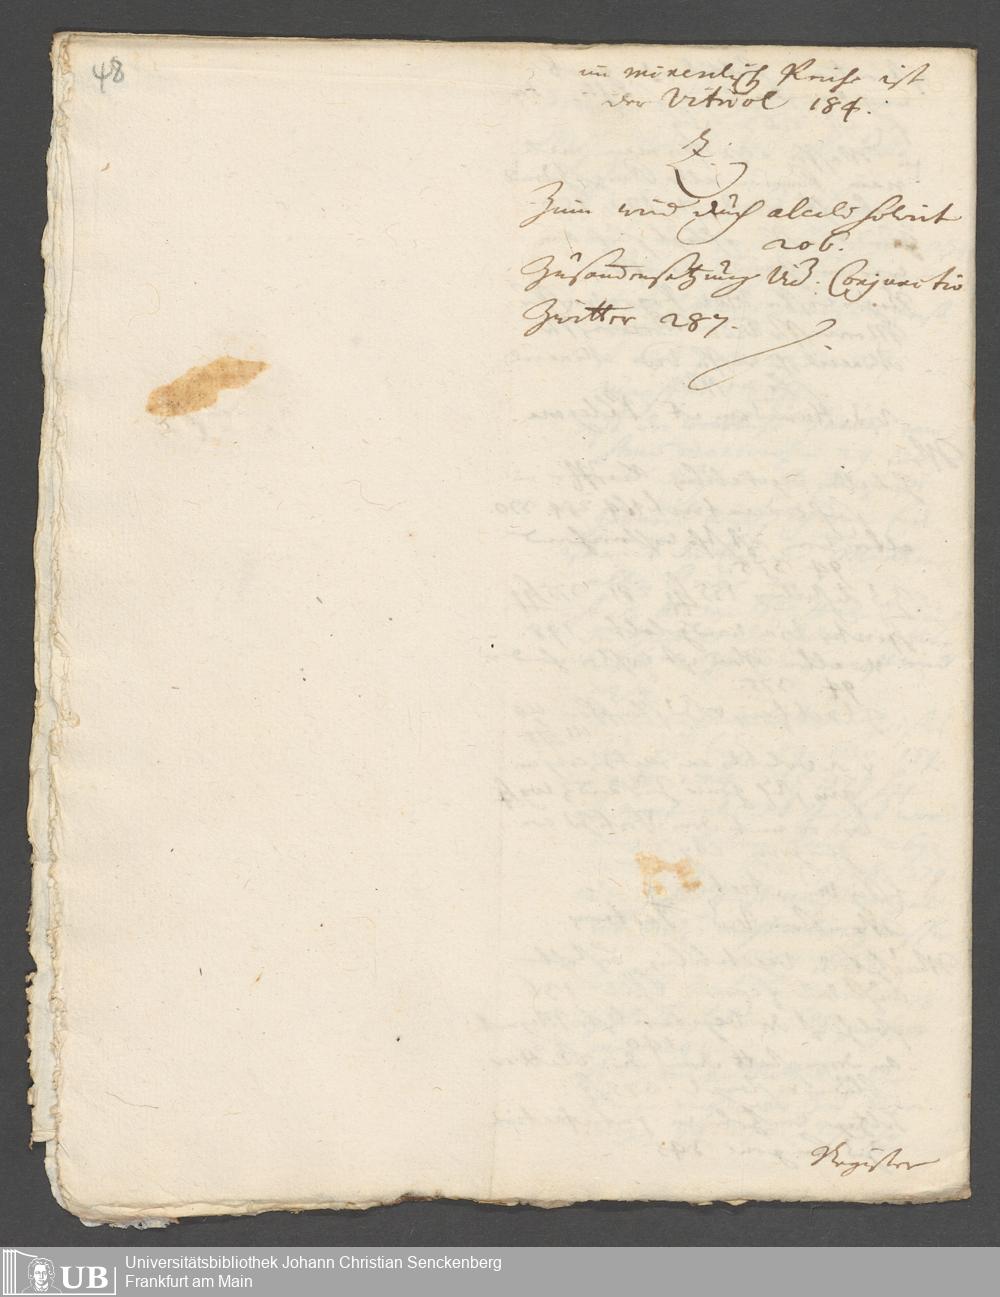 48
im mineralisch Reiche ist
der Vitriol 184.
Z.
Zinn wird durch alcali solvirt
206.
Zusammensetzung Vid. Conjunctio
Zwitter 287.
Register
UB
Universitätsbibliothek Johann Christian Senckenberg
Frankfurt am Main